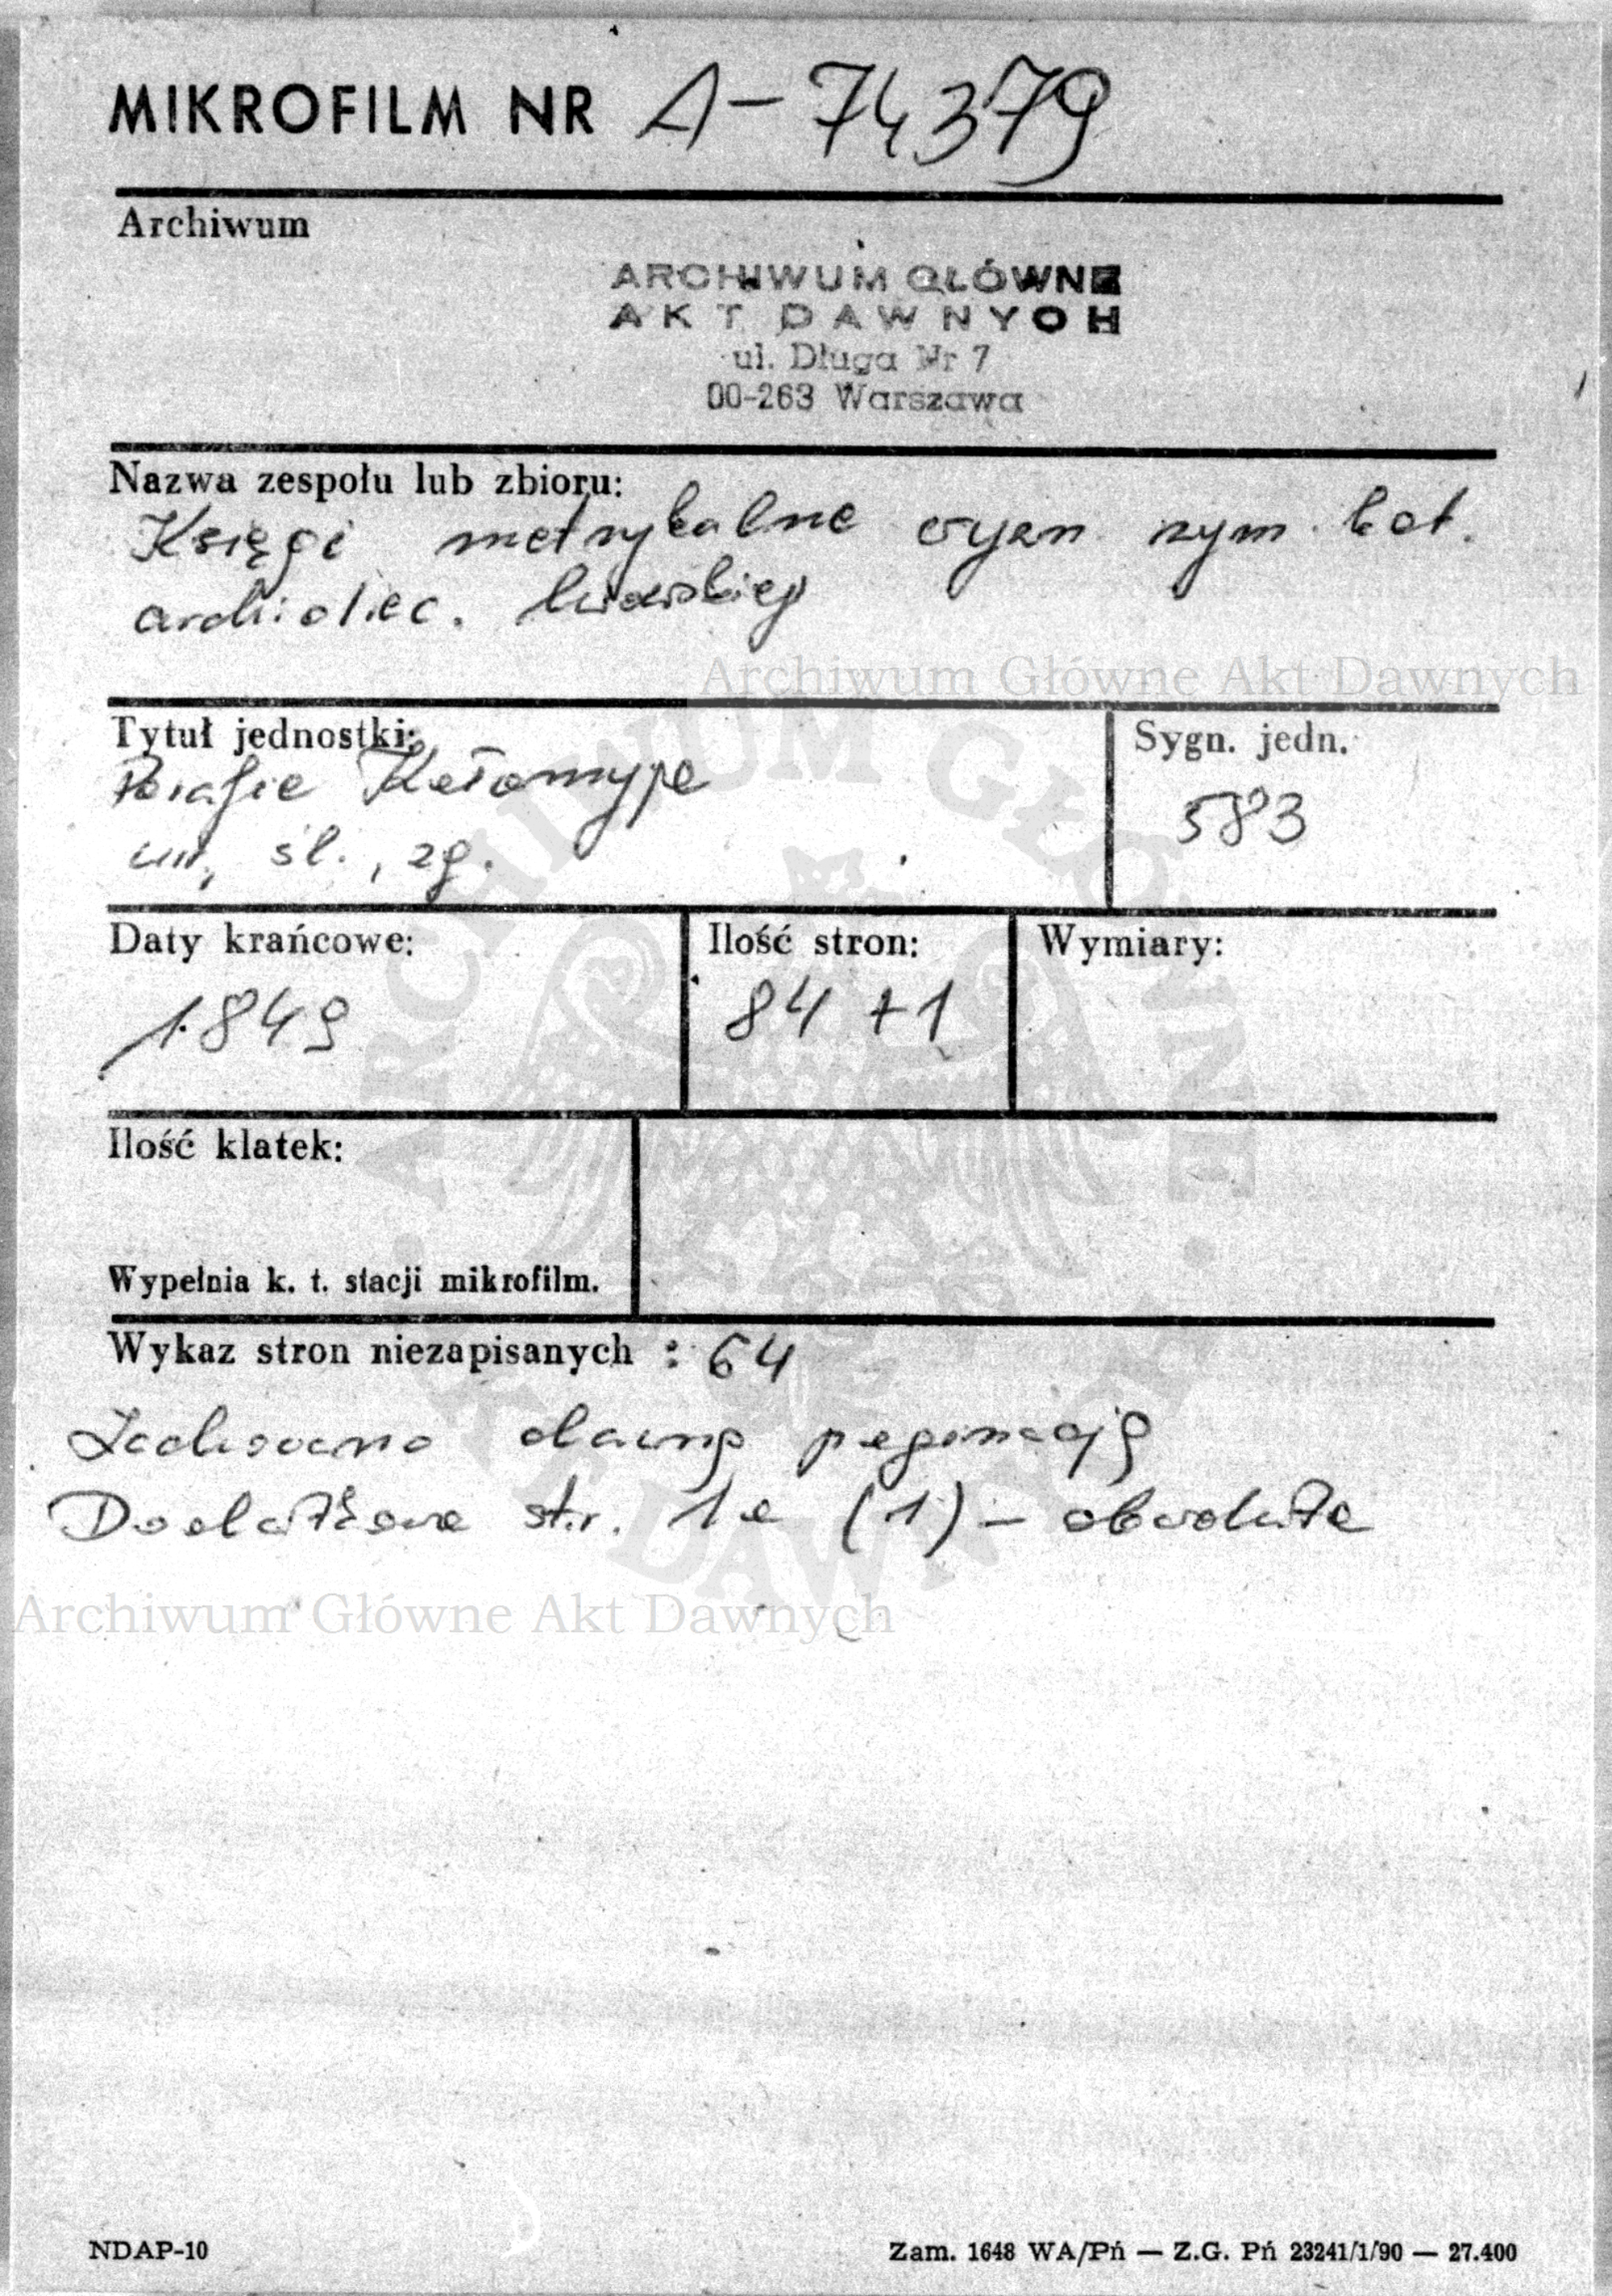 MIKROFILM NR A-74379
Archiwum
ARCHIWUM GŁÓWNE
AKT DAWNYCH
ul. Długa Nr 7
00-263 Warszawa
Nazwa zespołu lub zbioru:
Księgi metrykalne rym. kat.
archidiec. lwowskiej
Archiwum Główne Akt Dawnych
Tytuł jednostki:
Parafia Kołomyja
ur., śl., zg.
Sygn. jedn.
583
Daty krańcowe:
1849
Ilość stron:
84 + 1
Wymiary:
Ilość klatek:
Wypełnia k. t. stacji mikrofilm.
Wykaz stron niezapisanych : 64
Zachowano dawną paginację
Dodatkowe str. 1a (1) - obwoluta
Archiwum Główne Akt Dawnych
ARCHIWUM GŁÓWNE AKT DAWNYCH
NDAP-10
Zam. 1648 WA/Pń — Z.G. Pń 23241/1/90 — 27.400